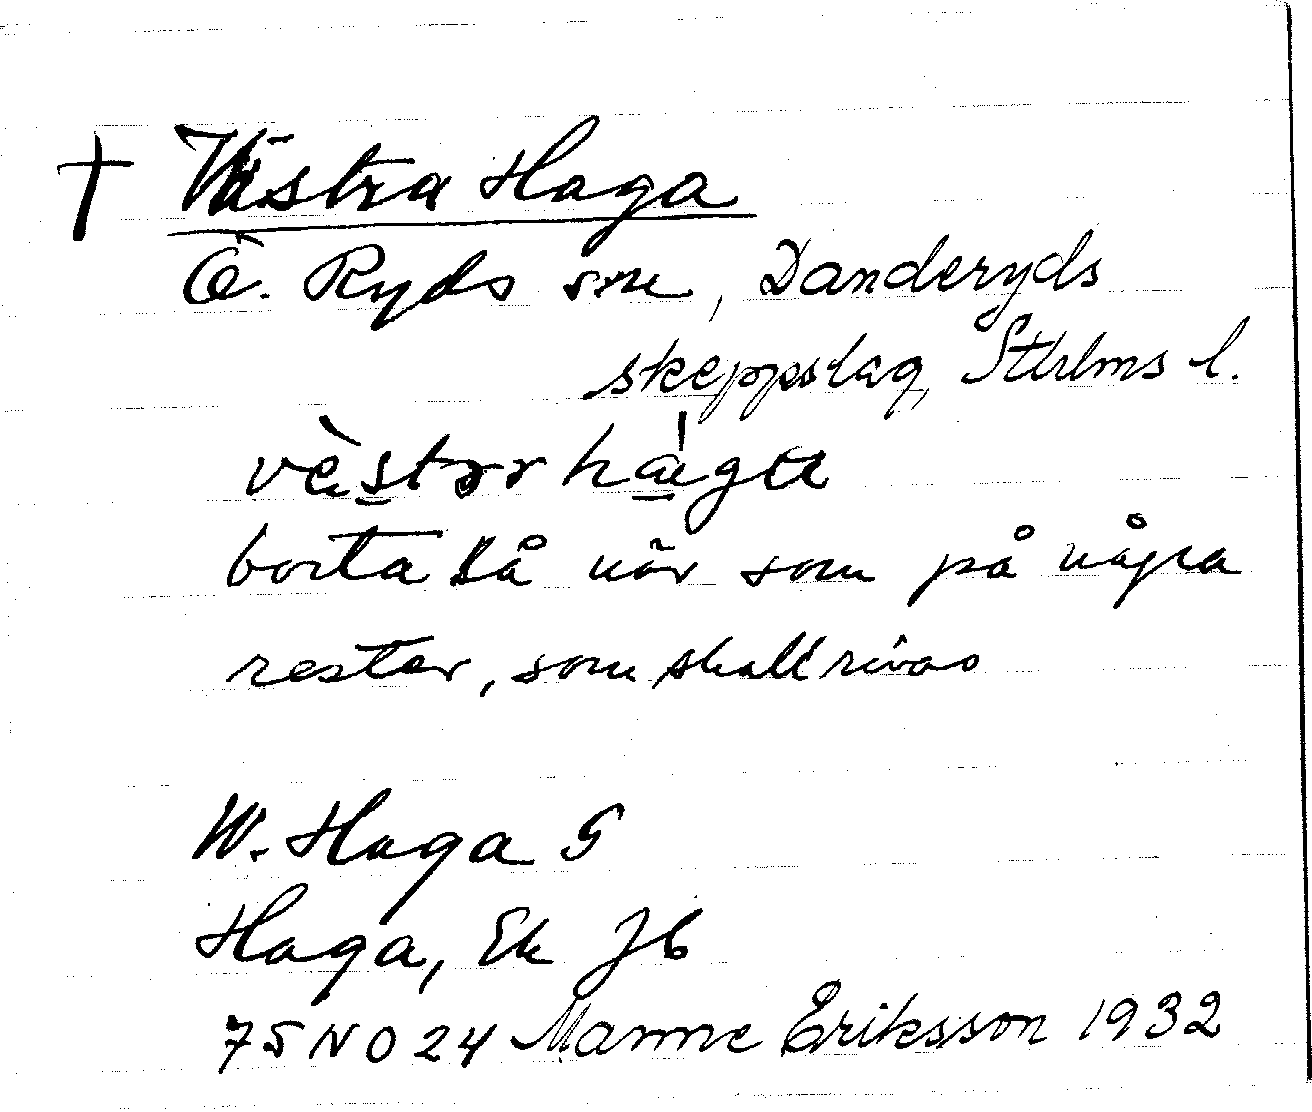 † Västra Haga
Ö. Ryds sn, Danderyds
skeppslag, Sthlms l.
vèstər hágα
borta så när som på några
rester, som skall rivas
W. Haga G
Haga, Ek Jb
75 NO 24 Manne Eriksson 1932